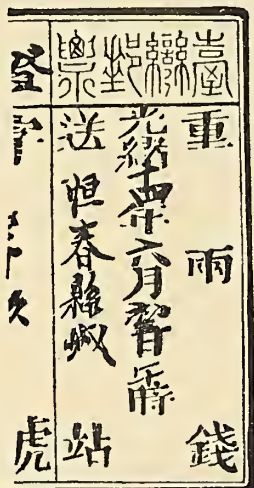 臺灣郵票
重 兩 錢
光緒十四年六月 日 時
送 恒春縣城 站
字